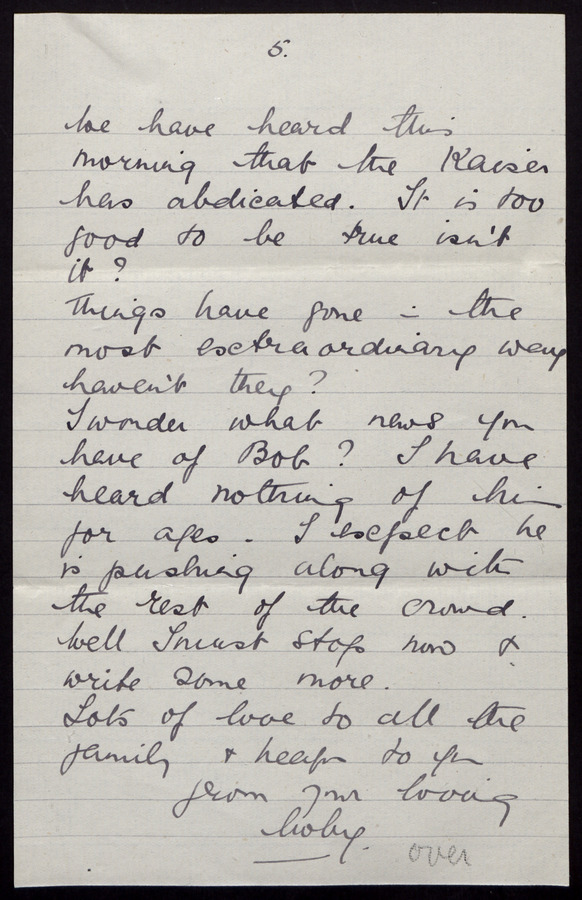 5.
We have heard this
morning that the Kaiser
has abdicated. It is too
good to be true isn't
it?
Things have gone in the
most extraordinary way
haven't they?
I wonder what news you
have of Bob? I have
heard nothing of him
for ages. I expect he
is pushing along with
the rest of the crowd.
Well I must stop now &
write some more.
Lots of love to all the
family & heaps to you
from your loving
over